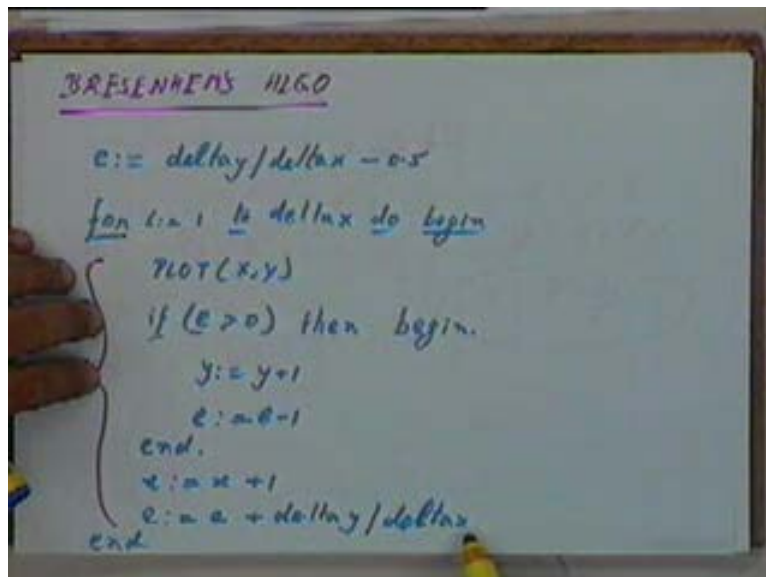 BRESENHEM'S ALGO
e := deltay/deltax - 0.5
for i := 1 to deltax do begin
PLOT(X,Y)
if (e > 0) then begin.
y := y+1
e := e-1
end.
x := x+1
e := e + deltay/deltax
end